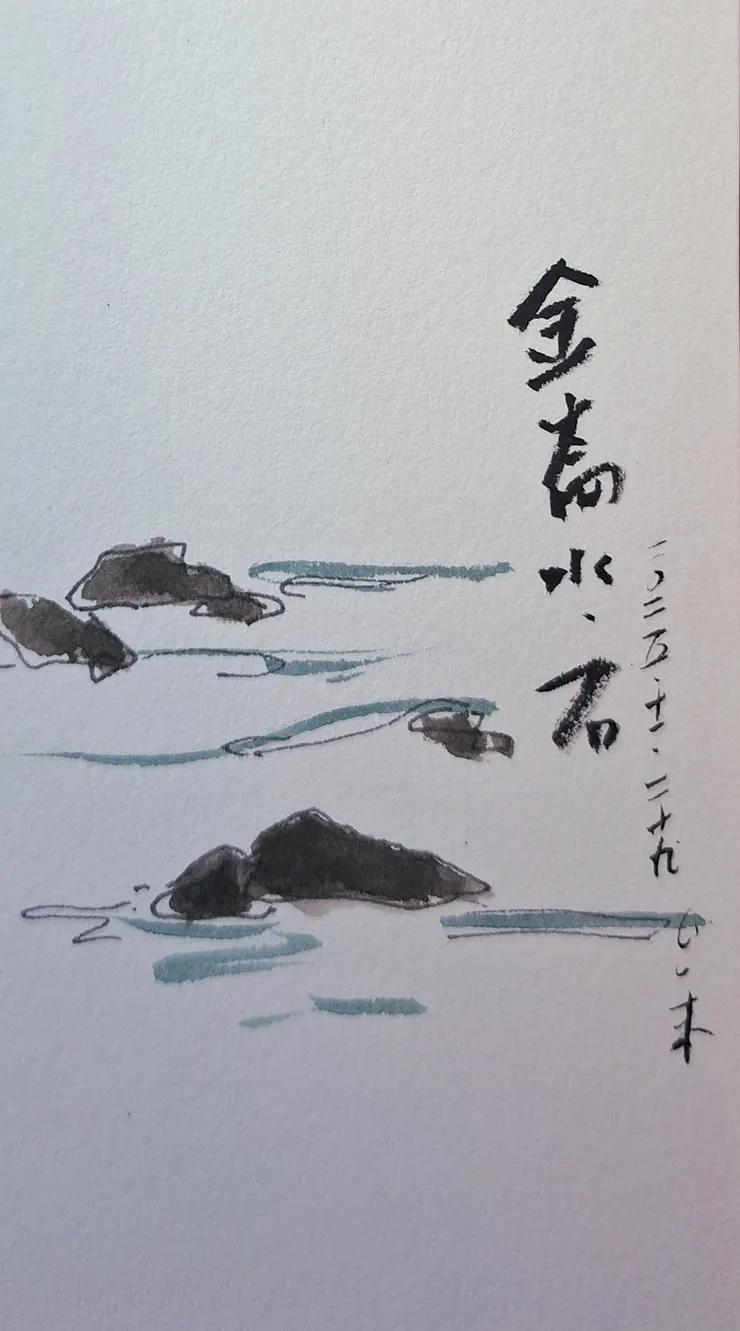 金水·石
二〇二五·十一·二十九